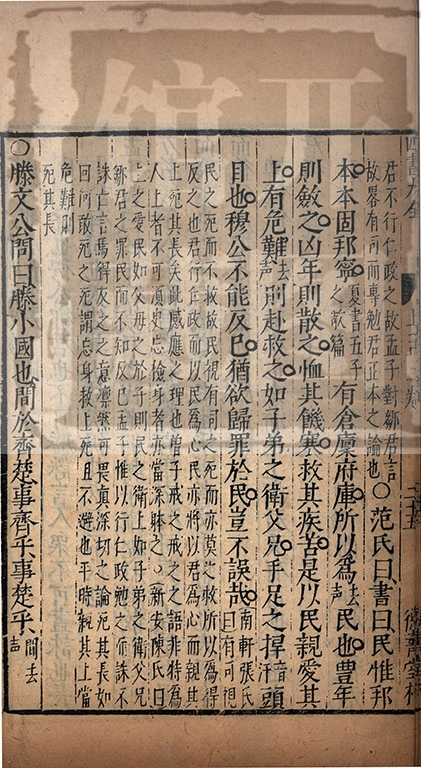 君不行仁政之故孟子對鄒君言
故畧有司而專勉君正本之論也
○范氏曰書曰民惟邦
本本固邦寧
夏書五子
之歌篇
有倉廩府庫所以爲
去
聲
民也豐年
則斂之凶年則散之恤其饑寒救其疾苦是以民親愛其
上有危難
去
聲
則赴救之如子弟之衛父兄手足之捍
音
汗
頭
目也穆公不能反已猶欲歸罪於民豈不誤哉
南軒張氏
曰有司視
民之死而不救故民視有司之死而亦莫之救所以爲得
反之也君行仁政而以民爲心民亦將以君爲心而親其
上死其長矣此感應之理也曾子戒之戒之之語非特爲
人上者不可須臾忘檢身者亦當深體之○新安陳氏曰
上之愛民如父母之於子則民之衛上如子弟之衛父兄
鄒君之罪民而不知反己孟子惟以行仁政勉之而誅不
誅亡言焉觧反之之意凛然可畏真深切之論死其長如
回何敢死之死謂忘身救上死且不避也平時親其上當
危難則
死其長
○滕文公問曰滕小國也間於齊楚事齊乎事楚乎
間去
聲